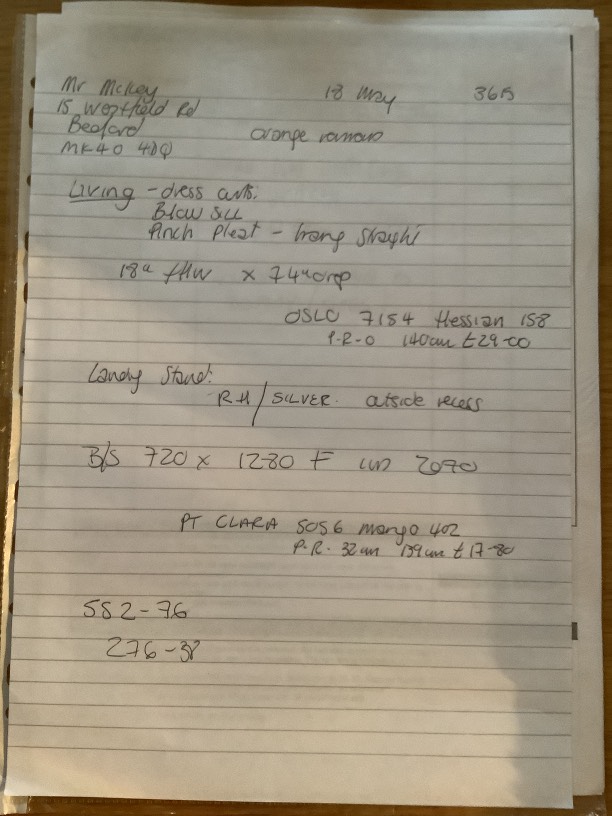 Mr McKey 18 May 3615
15 Westfield Rd
Bedford orange romans
MK40 4DQ
Living - dress curts.
Blow Sill
Pinch Pleat - hang straight
18" fhw x 74" drop
OSLO 7154 Hessian 158
P-R-O 140cm £29-00
Landg Stand:
RH/SILVER. outside recess
B/S 720 x 1280 F 2070
PT CLARA 5056 mango 402
P.R. 32cm 139cm £17-80
552-76
276-38